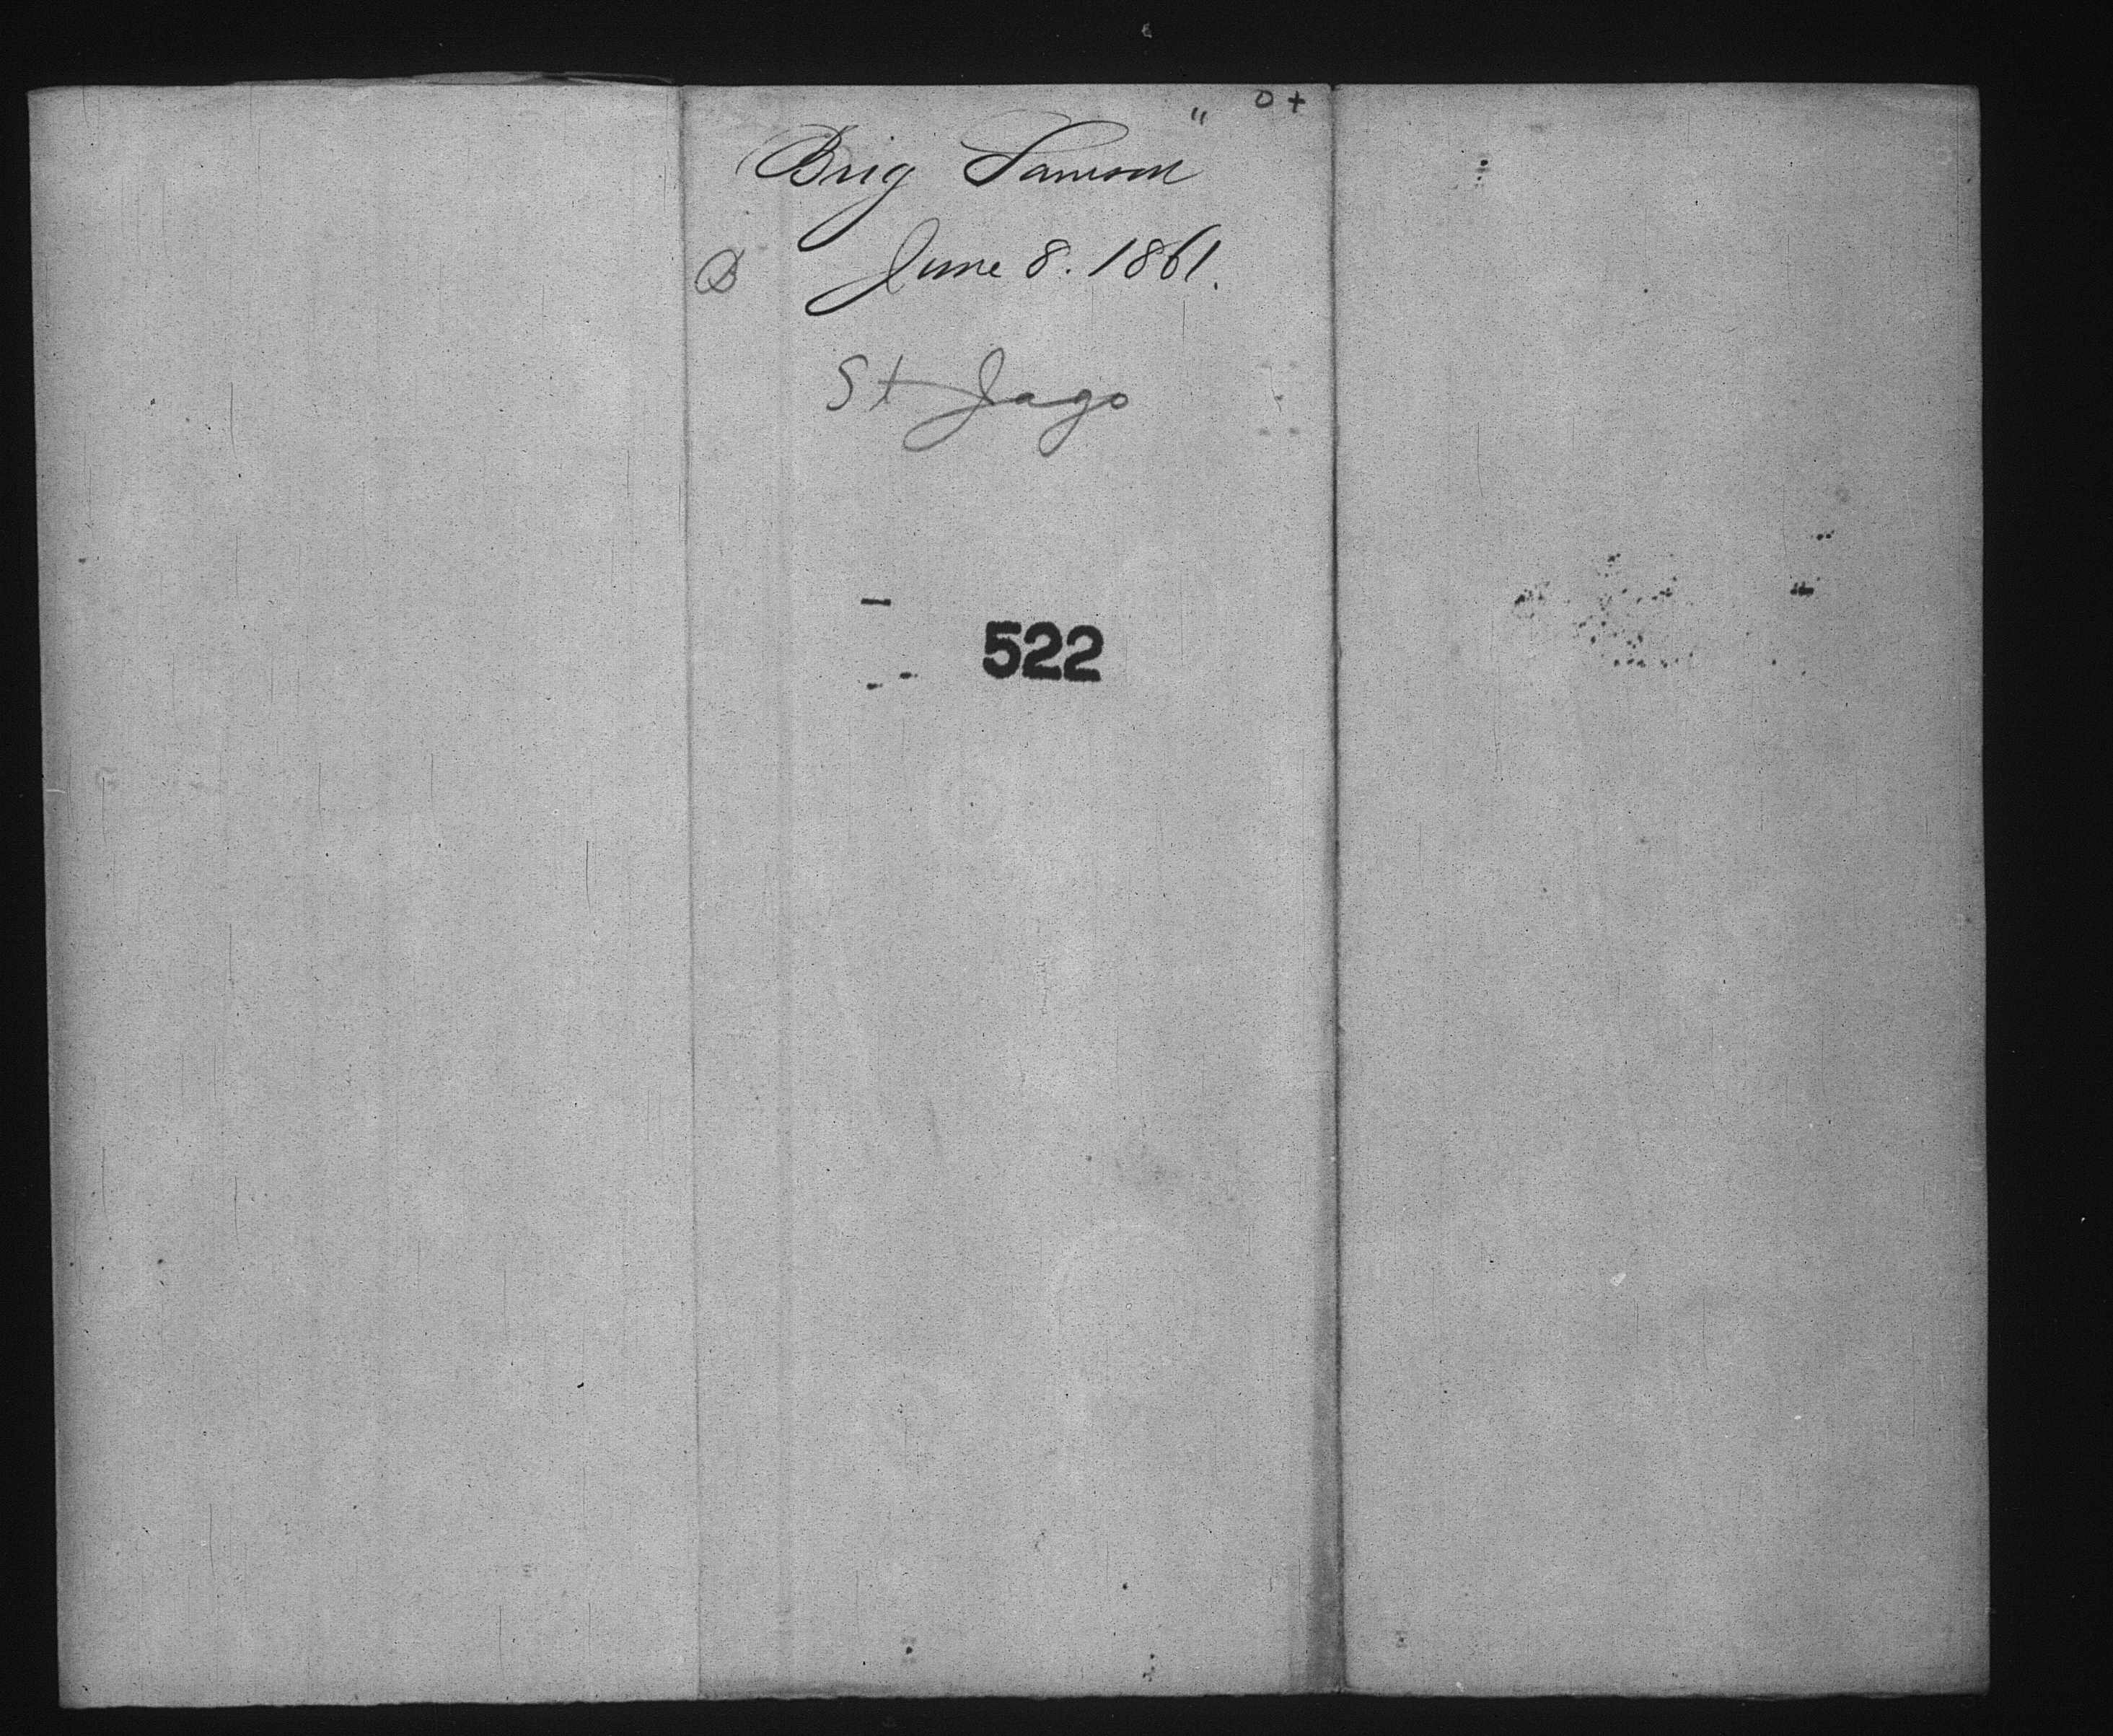 o +
Brig Samson "
B June 8. 1861.
St Jago
522